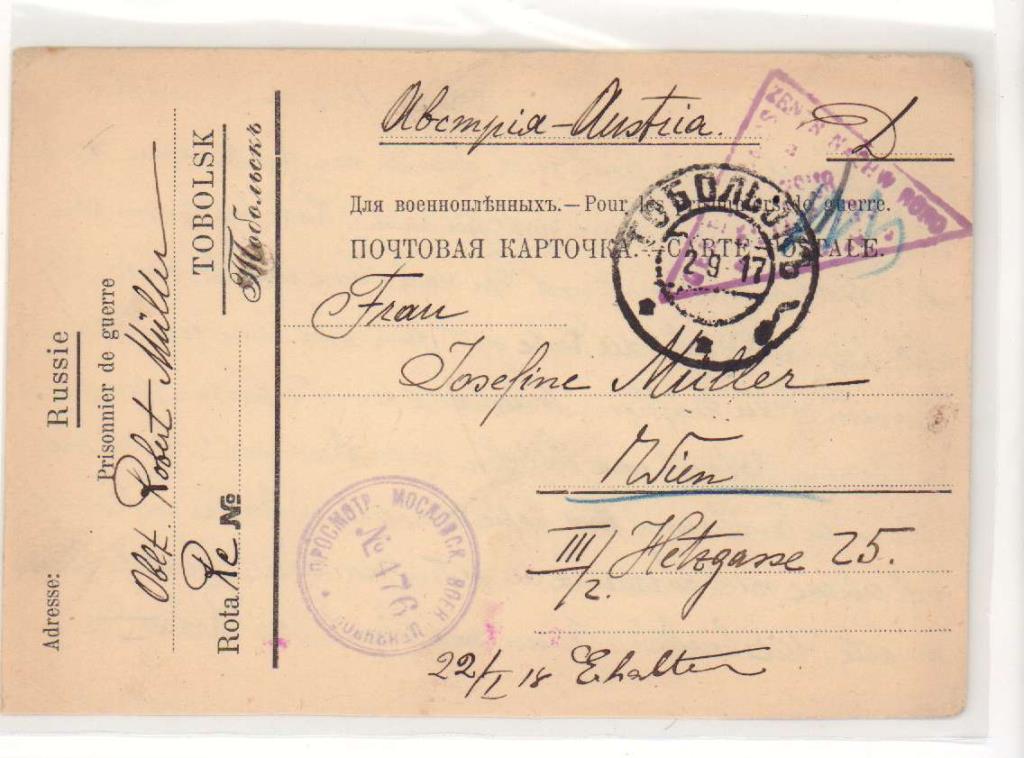 Австрія-Austria.
D
Для военноплѣнныхъ.—Pour les prisonniers de guerre.
ПОЧТОВАЯ КАРТОЧКА.—CARTE POSTALE.
Frau
Josefine Müller
Wien
III/2. Hetzgasse 25.
22/I 18 Erhalten
ТОБОЛЬСКЪ
2 9 17
ПРОСМОТР. МОСКОВСК. ВОЕН. ЦЕНЗУРОЮ
№ 476
Russie
Prisonnier de guerre
Adresse:
Robert Müller
TOBOLSK
Тобольскъ
Rota №